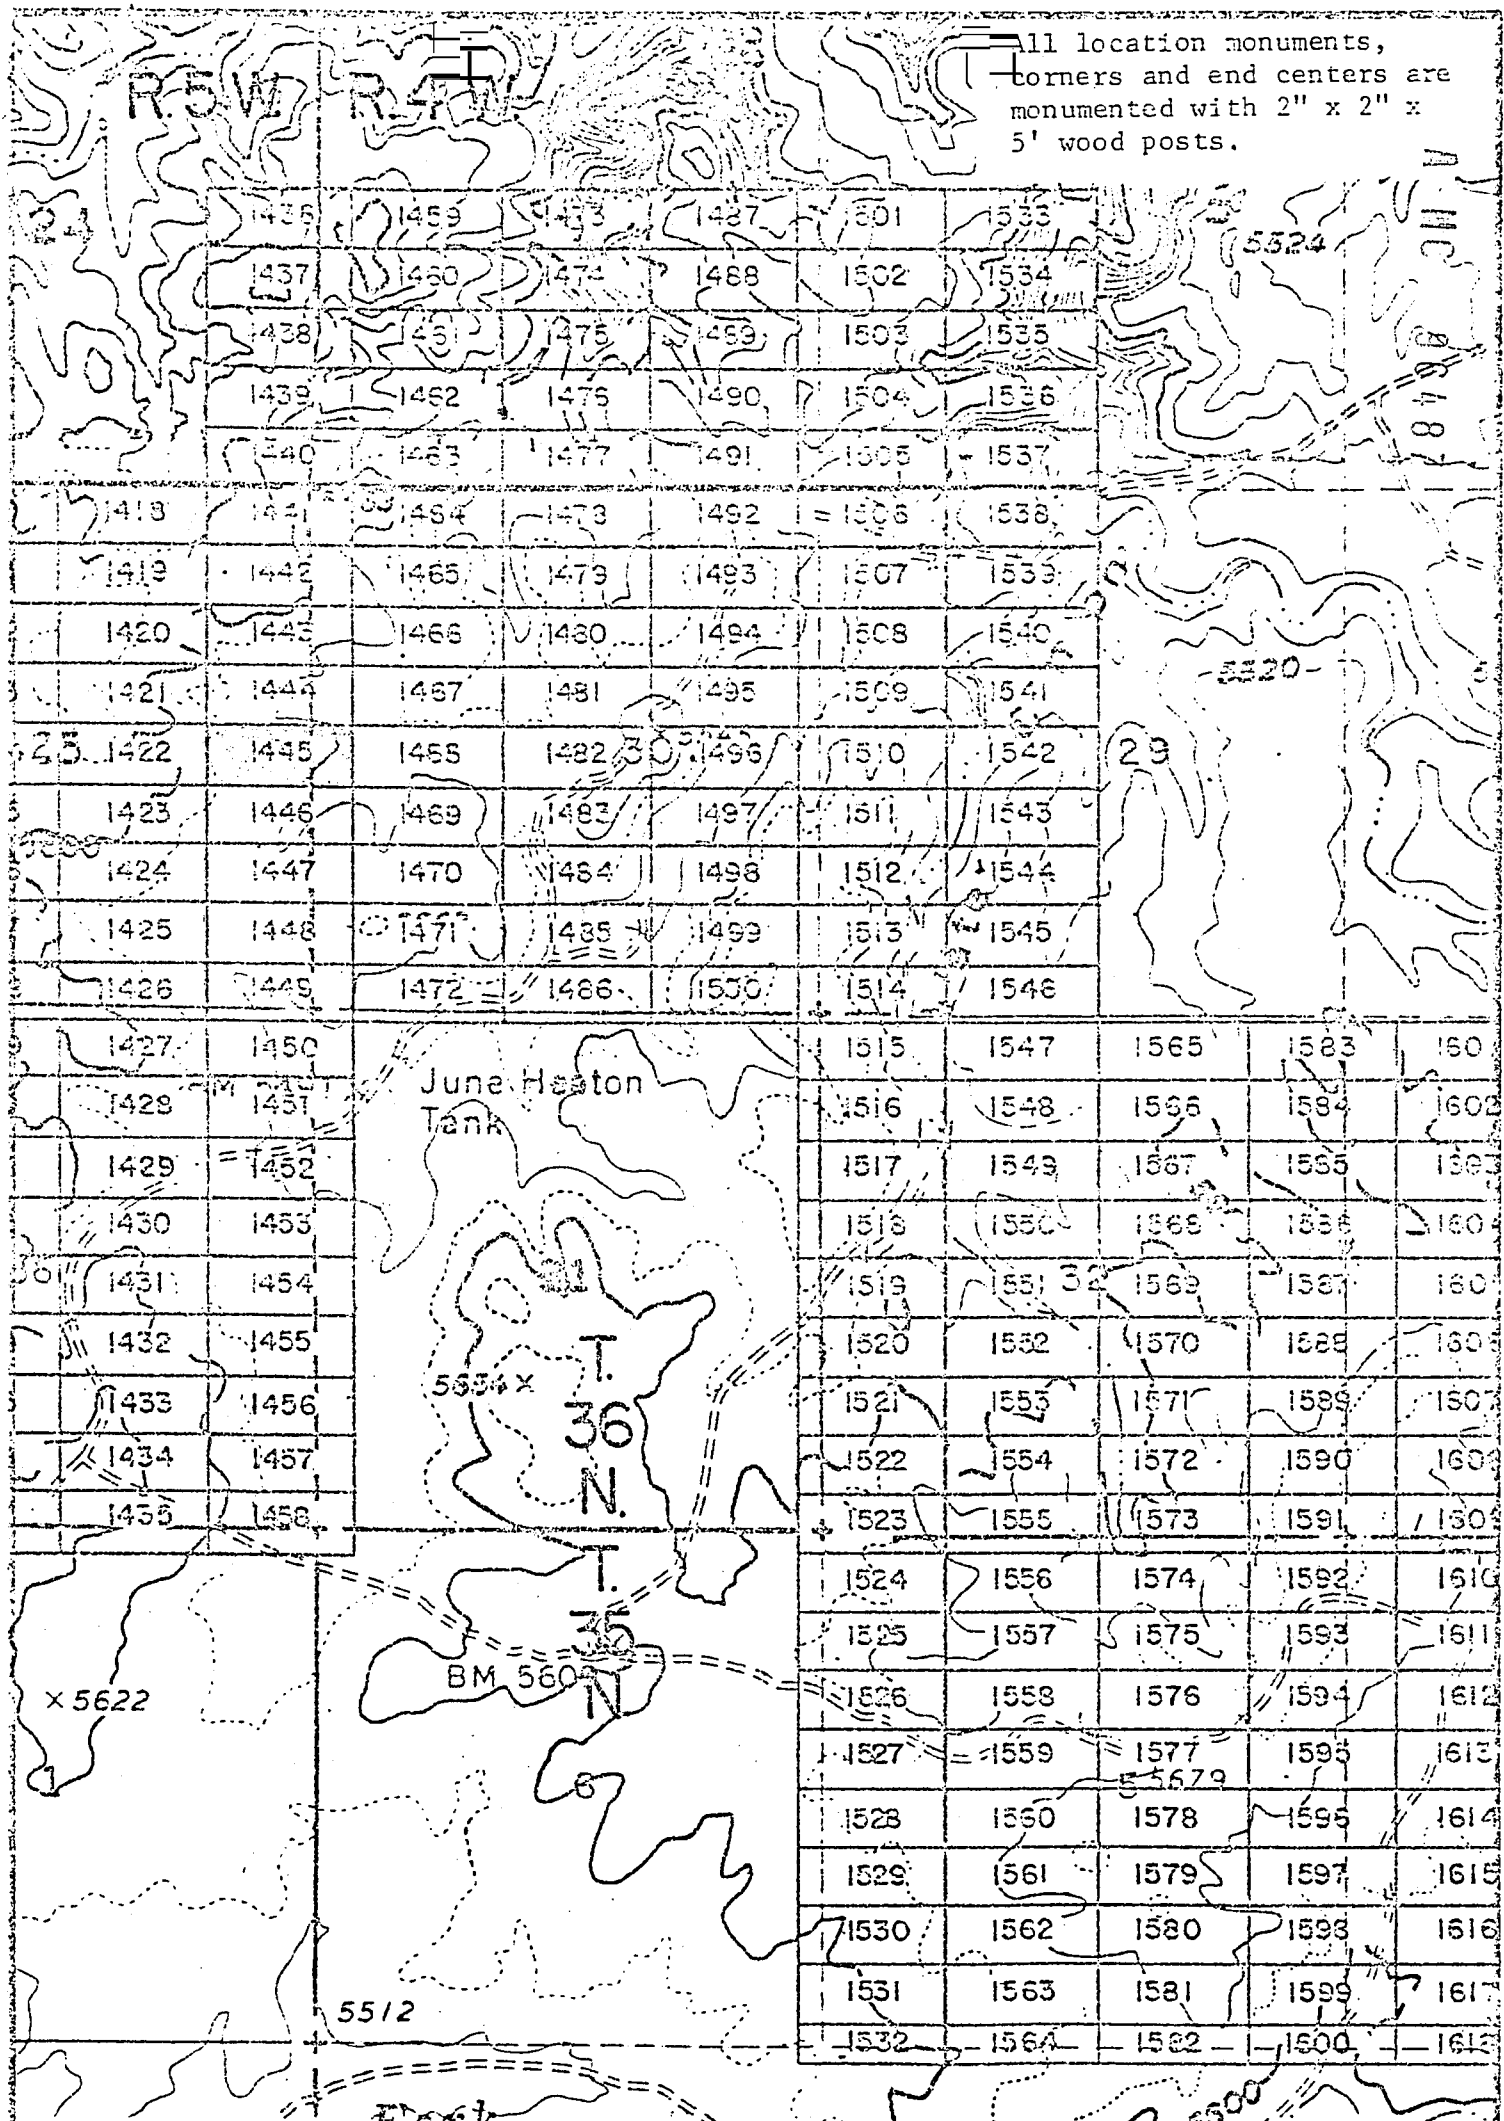 All location monuments,
corners and end centers are
monumented with 2" x 2" x
5' wood posts.
R.5W. R.4W.
24
5524
1436 1459 1473 1487 1501 1533
1437 1460 1474 1488 1502 1534
1438 1461 1475 1489 1503 1535
1439 1462 1476 1490 1504 1536
1440 1463 1477 1491 1505 1537
1418 1441 1464 1478 1492 1506 1538
1419 1442 1465 1479 1493 1507 1539
1420 1443 1466 1480 1494 1508 1540
1421 1444 1467 1481 1495 1509 1541
5520
25 1422 1445 1468 1482 30 1496 1510 1542 29
1423 1446 1469 1483 1497 1511 1543
1424 1447 1470 1484 1498 1512 1544
1425 1448 1471 1485 1499 1513 1545
1426 1449 1472 1486 1500 1514 1546
1427 1450 1515 1547 1565 1583 160
June Heaton
Tank
1428 1451 1516 1548 1566 1584 1602
1429 1452 1517 1549 1567 1585
1430 1453 1518 1550 1568 1586 160
1431 1454 31 1519 1551 32 1569 1587 160
1432 1455 1520 1552 1570 1588 160
5654 ×
1433 1456 1521 1553 1571 1589 1607
1434 1457 1522 1554 1572 1590 160
1435 1458 1523 1555 1573 1591 160
T.
36
N.
T.
35
N
1524 1556 1574 1592 1610
1525 1557 1575 1593 1611
BM 560
× 5622
1526 1558 1576 1594 1612
1527 1559 1577 1595 1613
6
5 5679
1528 1560 1578 1596 1614
1529 1561 1579 1597 1615
1530 1562 1580 1598 1616
1531 1563 1581 1599 1617
5512
1532 1564 1582 1600 1618